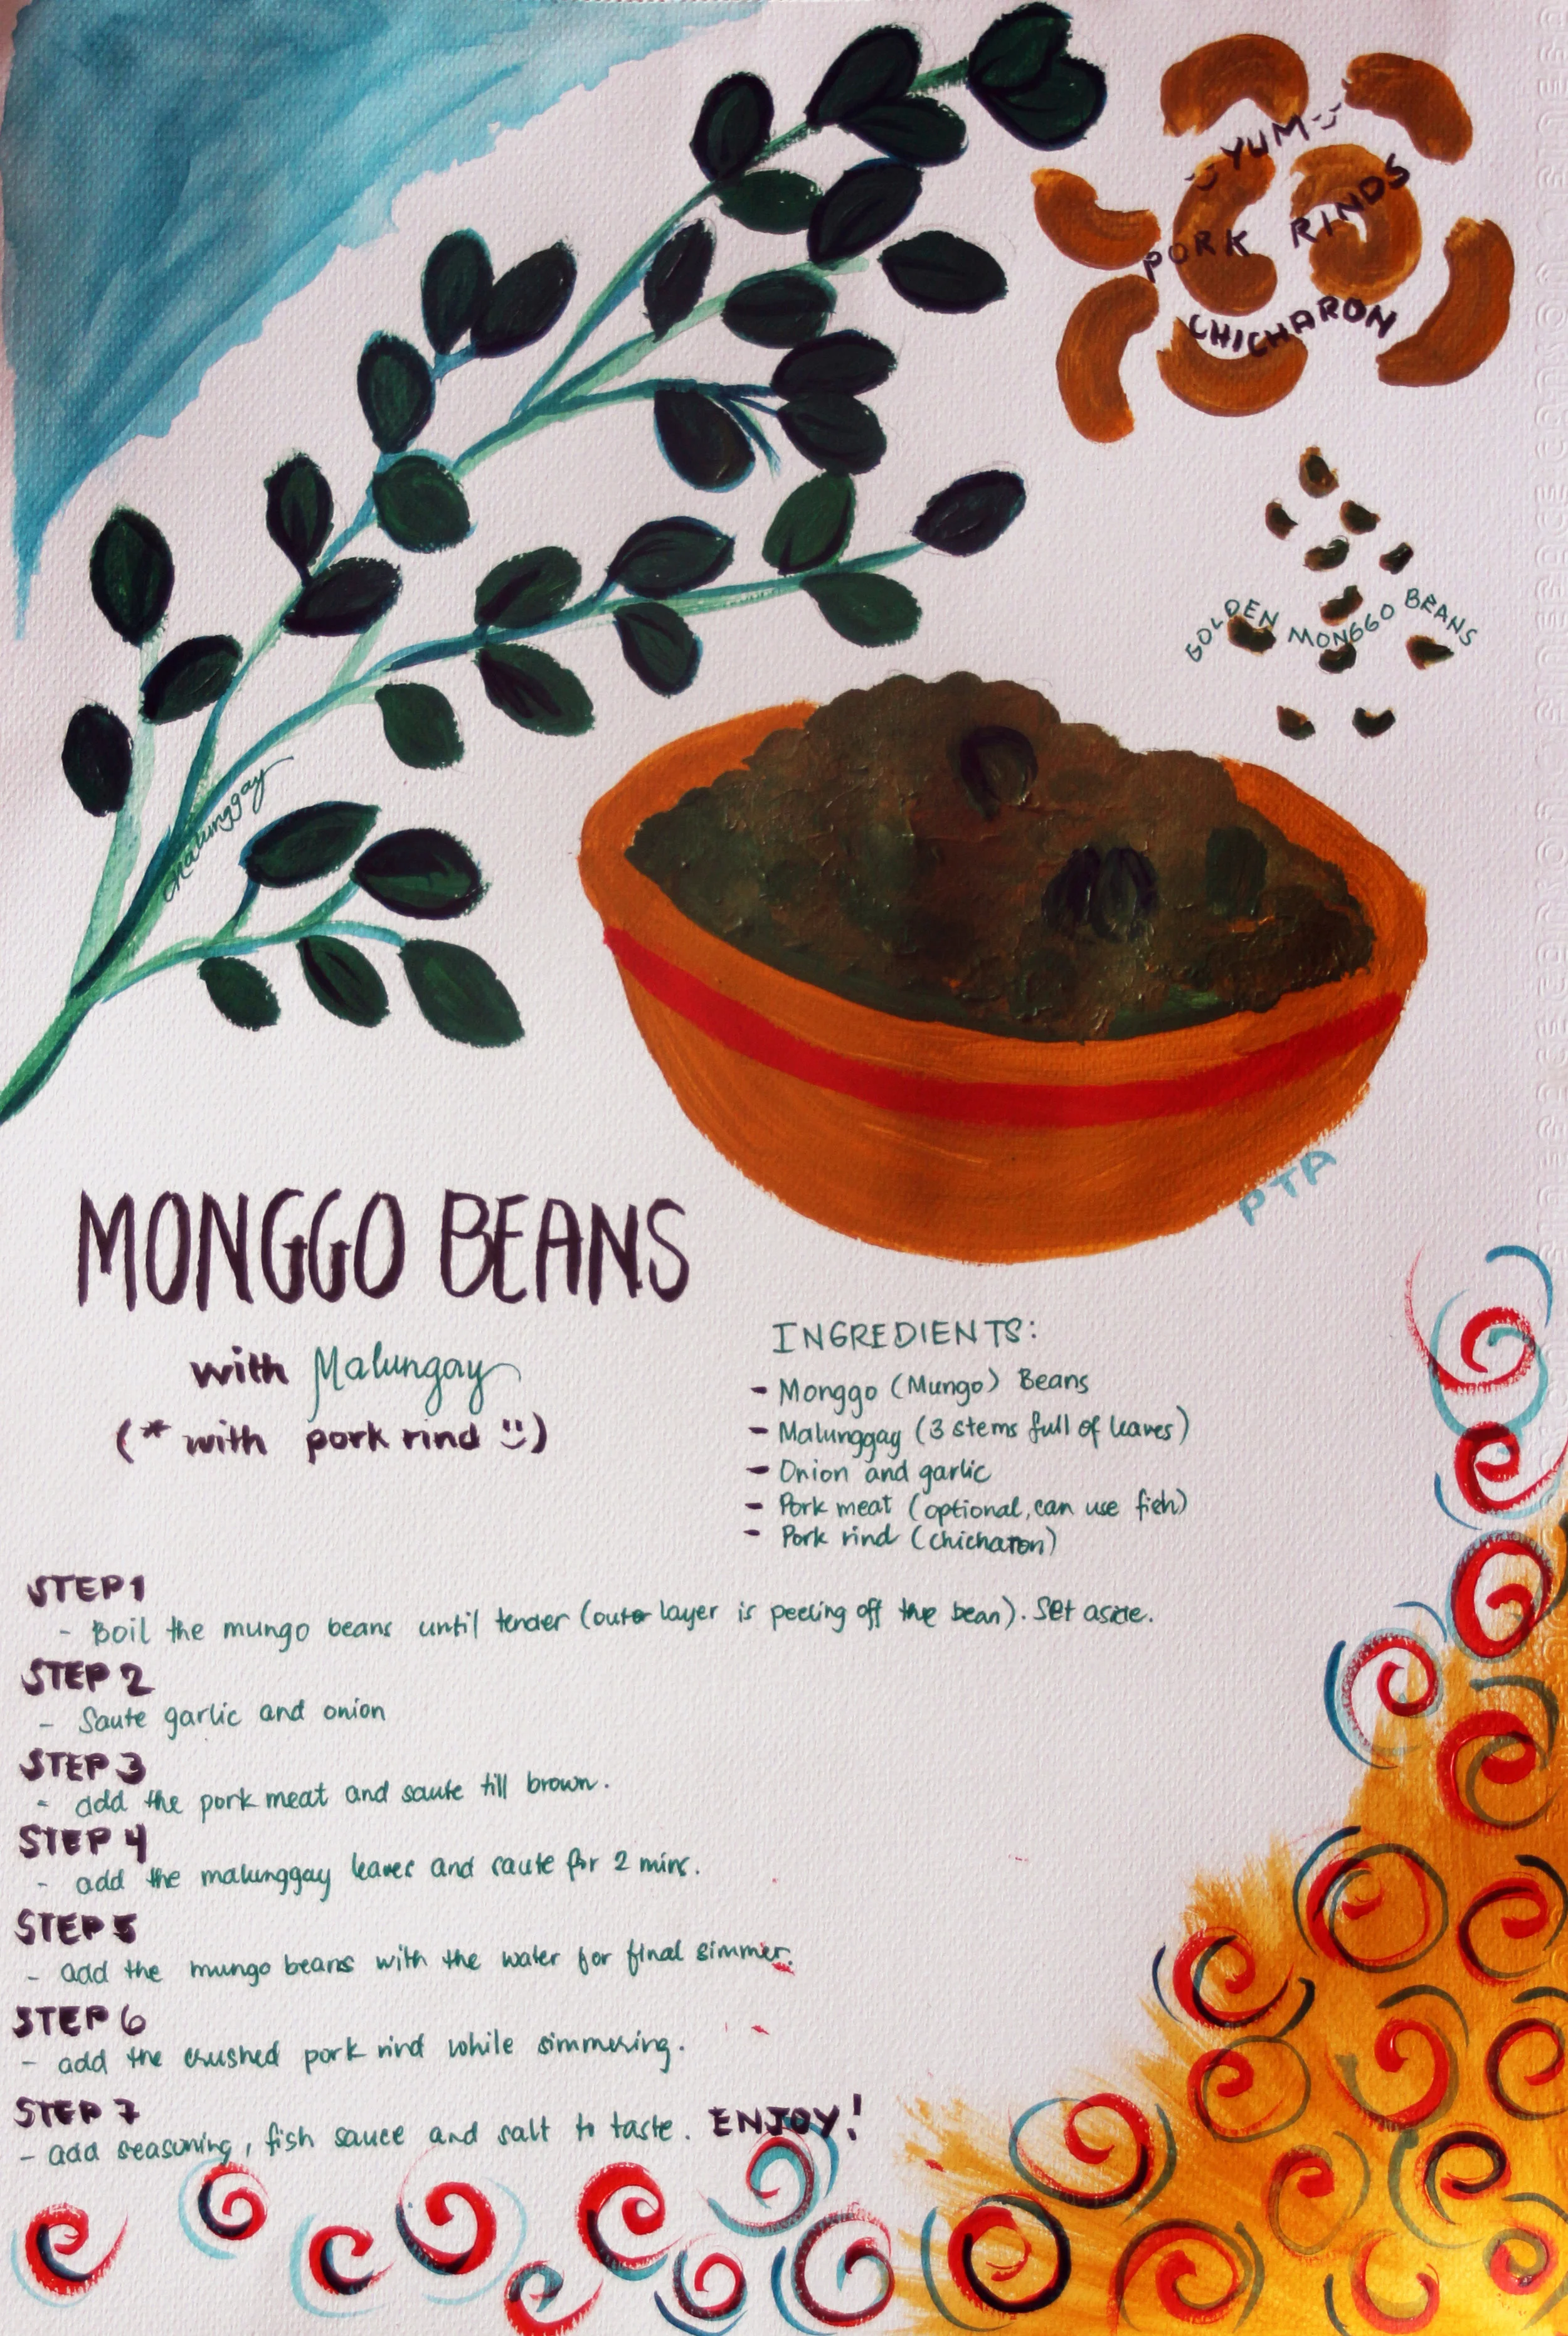 YUM
PORK RINDS
CHICHARON
GOLDEN MONGGO BEANS
Malunggay
PTA
MONGGO BEANS
with Malungay
(* with pork rind :))
INGREDIENTS:
- Monggo (Mungo) Beans
- Malunggay (3 stems full of leaves)
- Onion and garlic
- Pork meat (optional, can use fish)
- Pork rind (chicharon)
STEP 1
- Boil the mungo beans until tender (outer layer is peeling off the bean). Set aside.
STEP 2
- Saute garlic and onion
STEP 3
- add the pork meat and saute till brown.
STEP 4
- add the malunggay leaves and saute for 2 mins.
STEP 5
- add the mungo beans with the water for final simmer.
STEP 6
- add the crushed pork rind while simmering.
STEP 7
- add seasoning, fish sauce and salt to taste. ENJOY!